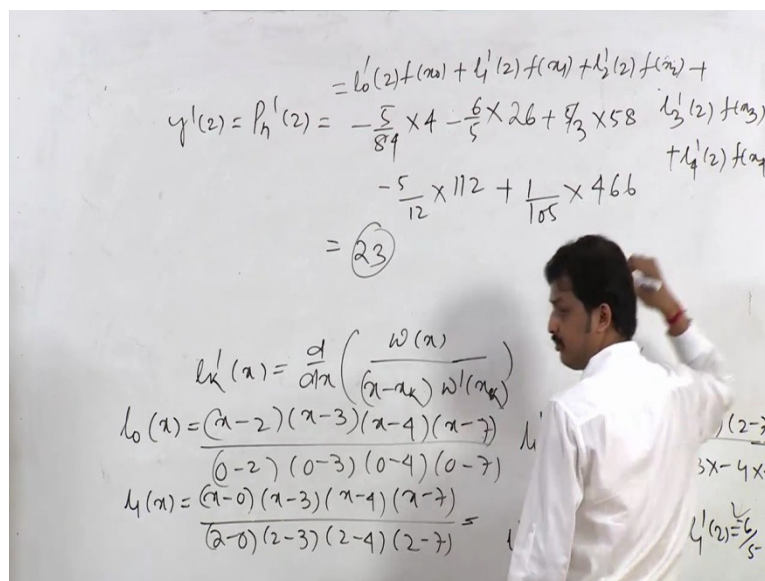 = l₀'(2) f(x₀) + l₁'(2) f(x₁) + l₂'(2) f(x₂) +
y'(2) = Pₙ'(2) = -5/84 × 4 - 6/5 × 26 + 5/3 × 58 l₃'(2) f(x₃)
+ l₄'(2) f(x₄
-5/12 × 112 + 1/105 × 466
= 23
lₖ'(x) = d/dx ( w(x) / (x-xₖ) w'(xₖ) )
l₀(x) = (x-2)(x-3)(x-4)(x-7) / (0-2)(0-3)(0-4)(0-7)
l₁(x) = (x-0)(x-3)(x-4)(x-7) / (2-0)(2-3)(2-4)(2-7) =
l₁'(2) = -6/5